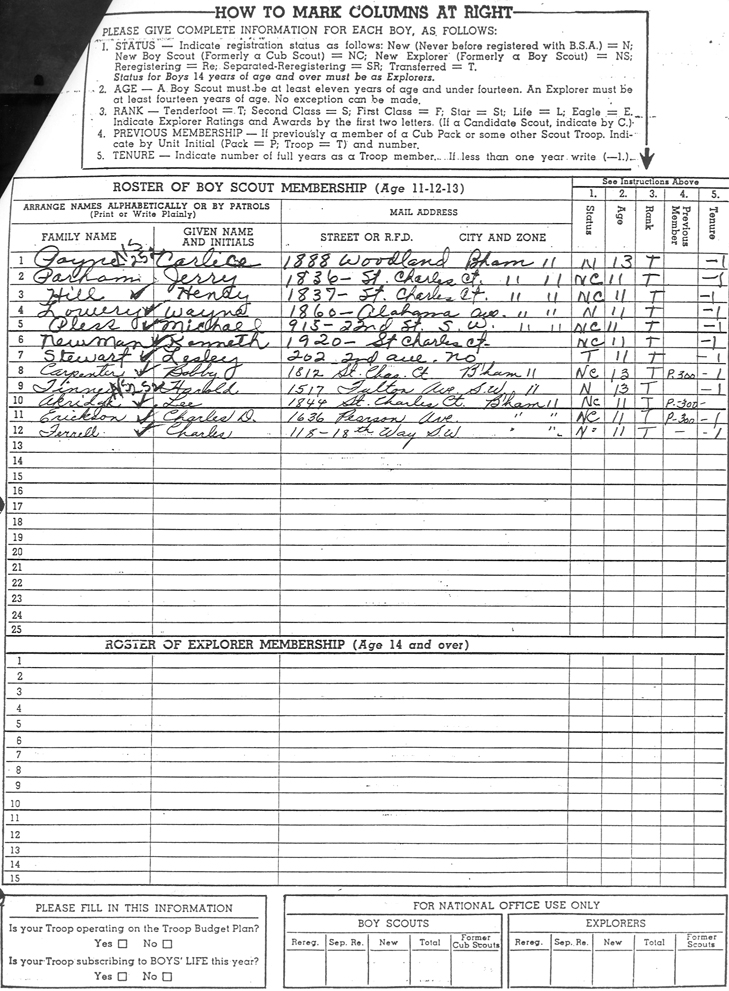 HOW TO MARK COLUMNS AT RIGHT
PLEASE GIVE COMPLETE INFORMATION FOR EACH BOY, AS FOLLOWS:
1. STATUS — Indicate registration status as follows: New (Never before registered with B.S.A.) = N;
New Boy Scout (Formerly a Cub Scout) = NC; New Explorer (Formerly a Boy Scout) = NS;
Reregistering = Re; Separated-Reregistering = SR; Transferred = T.
Status for Boys 14 years of age and over must be as Explorers.
2. AGE — A Boy Scout must be at least eleven years of age and under fourteen. An Explorer must be
at least fourteen years of age. No exception can be made.
3. RANK — Tenderfoot = T; Second Class = S; First Class = F; Star = St; Life = L; Eagle = E.
Indicate Explorer Ratings and Awards by the first two letters. (If a Candidate Scout, indicate by C.)
4. PREVIOUS MEMBERSHIP — If previously a member of a Cub Pack or some other Scout Troop. Indi-
cate by Unit Initial (Pack = P; Troop = T) and number.
5. TENURE — Indicate number of full years as a Troop member. If less than one year write (—1.)
ROSTER OF BOY SCOUT MEMBERSHIP (Age 11-12-13)
See Instructions Above
1. 2. 3. 4. 5.
ARRANGE NAMES ALPHABETICALLY OR BY PATROLS
(Print or Write Plainly)
MAIL ADDRESS
FAMILY NAME GIVEN NAME AND INITIALS STREET OR R.F.D. CITY AND ZONE
Status Age Rank Previous Member Tenure
1 Payne Carlice 1888 Woodland Bham 11 N 13 T -1
2 Parham Jerry 1836- St. Charles Ct. 11 11 NC 11 T -1
3 Hill Henry 1837- St. Charles Ct. " 11 NC 11 T -1
4 Lowery Wayne 1860- Alabama Ave. " 11 N 11 T -1
5 Pless Michael 915-22nd St. S.W. " 11 NC 11 T -1
6 Newman Kenneth 1920- St Charles Ct. NC 11 T -1
7 Stewart Lesley 202 2nd ave. no T 11 T -1
8 Carpenter Bobby 1812 St. Chas. Ct Bham 11 NC 13 T P-300 -1
9 Harold 1517 Fulton Ave. S.W. 11 N 13 T -1
10 Akridge Lee 1844 St. Charles Ct. Bham 11 NC 11 T P-300 -
11 Erickson Charles D. 1636 Pearson Ave. " " NC 11 T P-300 -1
12 Terrell Charles 118-18th Way S.W " " N 11 T - -1
13
14
15
16
17
18
19
20
21
22
23
24
25
ROSTER OF EXPLORER MEMBERSHIP (Age 14 and over)
1
2
3
4
5
6
7
8
9
10
11
12
13
14
15
PLEASE FILL IN THIS INFORMATION
Is your Troop operating on the Troop Budget Plan?
Yes ☐ No ☐
Is your Troop subscribing to BOYS' LIFE this year?
Yes ☐ No ☐
FOR NATIONAL OFFICE USE ONLY
BOY SCOUTS EXPLORERS
Rereg. Sep. Re. New Total Former Cub Scouts Rereg. Sep. Re. New Total Former Scouts